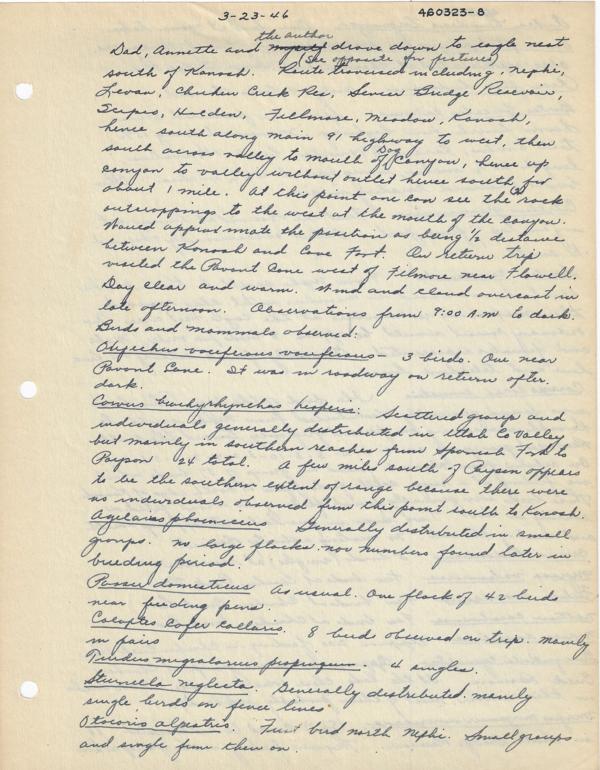 3-23-46
460323-8
the author
Dad, Annette and myself drove down to eagle nest
(See opposite for pictures)
south of Kanosh. Route traversed including, Nephi,
Levan, Chicken Creek Res, Sevier Bridge Reservoir,
Scipio, Holden, Fillmore, Meadow, Kanosh,
hence south along main 91 highway to west, then
south across valley to mouth of Dog Canyon, hence up
canyon to valley without outlet hence south for
about 1 mile. At this point one can see the rock
outcroppings to the west at the mouth of the canyon.
approximate the position as being 1/2 distance
between Kanosh and Cove Fort. On return trip
visited the Pavant Cone west of Filmore near Flowell.
Day clear and warm. Wind and cloud overcast in
late afternoon. Observations from 9:00 A.M to dark.
Birds and mammals observed:
vociferous vociferous - 3 birds. One near
Pavant Cone. It was in roadway on return after
dark.
Corvus brachyrhynchos hesperis: Scattered group and
individuals generally distributed in Utah Co Valley
but mainly in southern reaches from Spanish Fork to
Payson 24 total. A few miles south of Payson appears
to be the southern extent of range because there were
no individuals observed from this point south to Kanosh.
Agelaius phoeniceus Generally distributed in small
groups. no large flocks nor numbers found later in
breeding period.
Passer domesticus As usual. One flock of 42 birds
near feeding pens.
Colaptes cafer collaris. 8 bird observed on trip. mainly
in pairs
Turdus migratorius propinquus. 4 singles.
Sturnella neglecta. Generally distributed. mainly
single birds on fence lines
Otocoris alpestris. First bird north Nephi. Small groups
and single from then on.